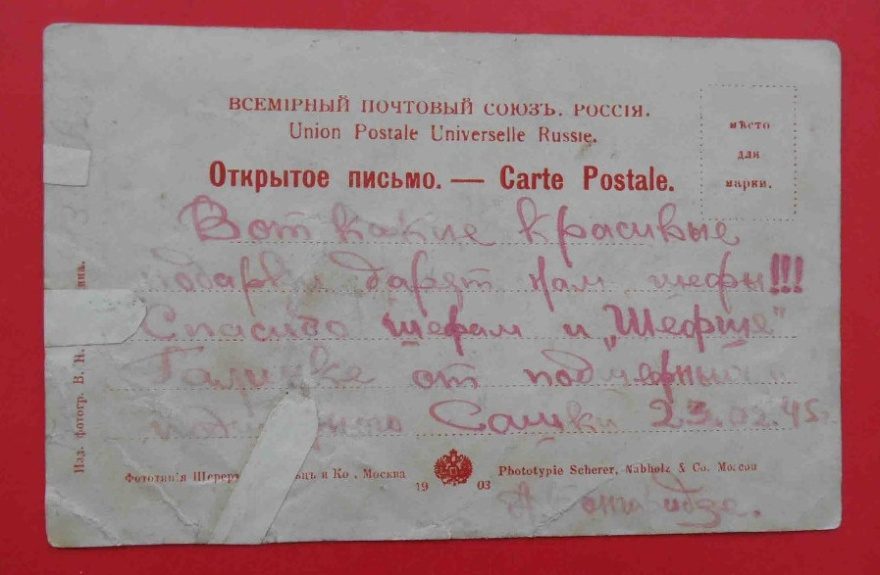 ВСЕМІРНЫЙ ПОЧТОВЫЙ СОЮЗЪ. РОССІЯ.
Union Postale Universelle Russie.
мѣсто
для
марки.
Открытое письмо. — Carte Postale.
Вот какие красивые
подарки дарят нам шефы!!!
Спасибо шефам и „Шефше"
Галичке от
Сашки 23.02.45
Изд. фотогр. В. Н.
Фототипія Шерер и Ко, Москва
1903
Phototypie Scherer, Nabholz & Co. Moscou